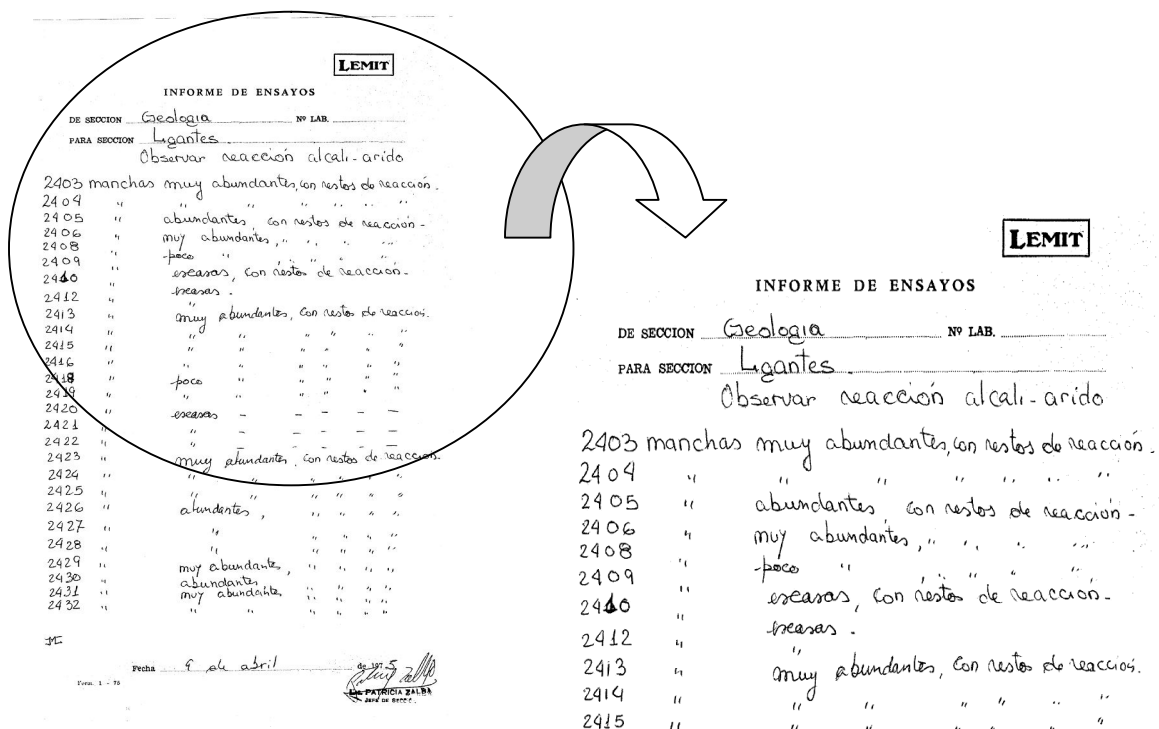 LEMIT
INFORME DE ENSAYOS
DE SECCION Geologia Nº LAB.
PARA SECCION Ligantes.
Observar reacción alcali-arido
2403 manchas muy abundantes, con restos de reacción.
2404 " " " " " " "
2405 " abundantes, con restos de reacción -
2406 " muy abundantes, " " " "
2408 " poco " " " " "
2409 " escasas, con restos de reacción -
2410 " escasas.
2412 " "
2413 " muy abundantes, con restos de reacción.
2414 " " " " " " "
2415 " " " " " " "
2416 " " " " " " "
2418 " poco " " " " "
2419 " " " " " " "
2420 " escasas - - - -
2421 " " - - - -
2422 " " - - - -
2423 " muy abundantes, con restos de reacción.
2424 " " " " " " "
2425 "
2426 " abundantes, " " " "
2427 " " " " " "
2428 " " " " " "
2429 " muy abundantes, " " " "
2430 " abundantes " " " "
2431 " muy abundantes " " " "
2432 " " " " " " "
Fecha 9 de abril de 1975
Form. 1 - 75
Lic. PATRICIA ZALBA
JEFE DE SECC.
LEMIT
INFORME DE ENSAYOS
DE SECCION Geologia Nº LAB.
PARA SECCION Ligantes.
Observar reacción alcali-arido
2403 manchas muy abundantes, con restos de reacción.
2404 " " " " " " "
2405 " abundantes, con restos de reacción -
2406 " muy abundantes, " " " "
2408 " poco " " " " "
2409 " escasas, con restos de reacción -
2410 " escasas.
2412 " "
2413 " muy abundantes, con restos de reacción.
2414 " " " " " " "
2415 " " " " " " "